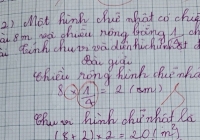 2) Một hình chữ nhật có chiều
dài 8m và chiều rộng bằng 1/4 ch
dài. Tính chu vi và diện tích
Bài giải
Chiều rộng hình chữ nhật
8 × 1/4 = 2 (m)
Chu vi hình chữ nhật là
(8 + 2) × 2 = 20 (m